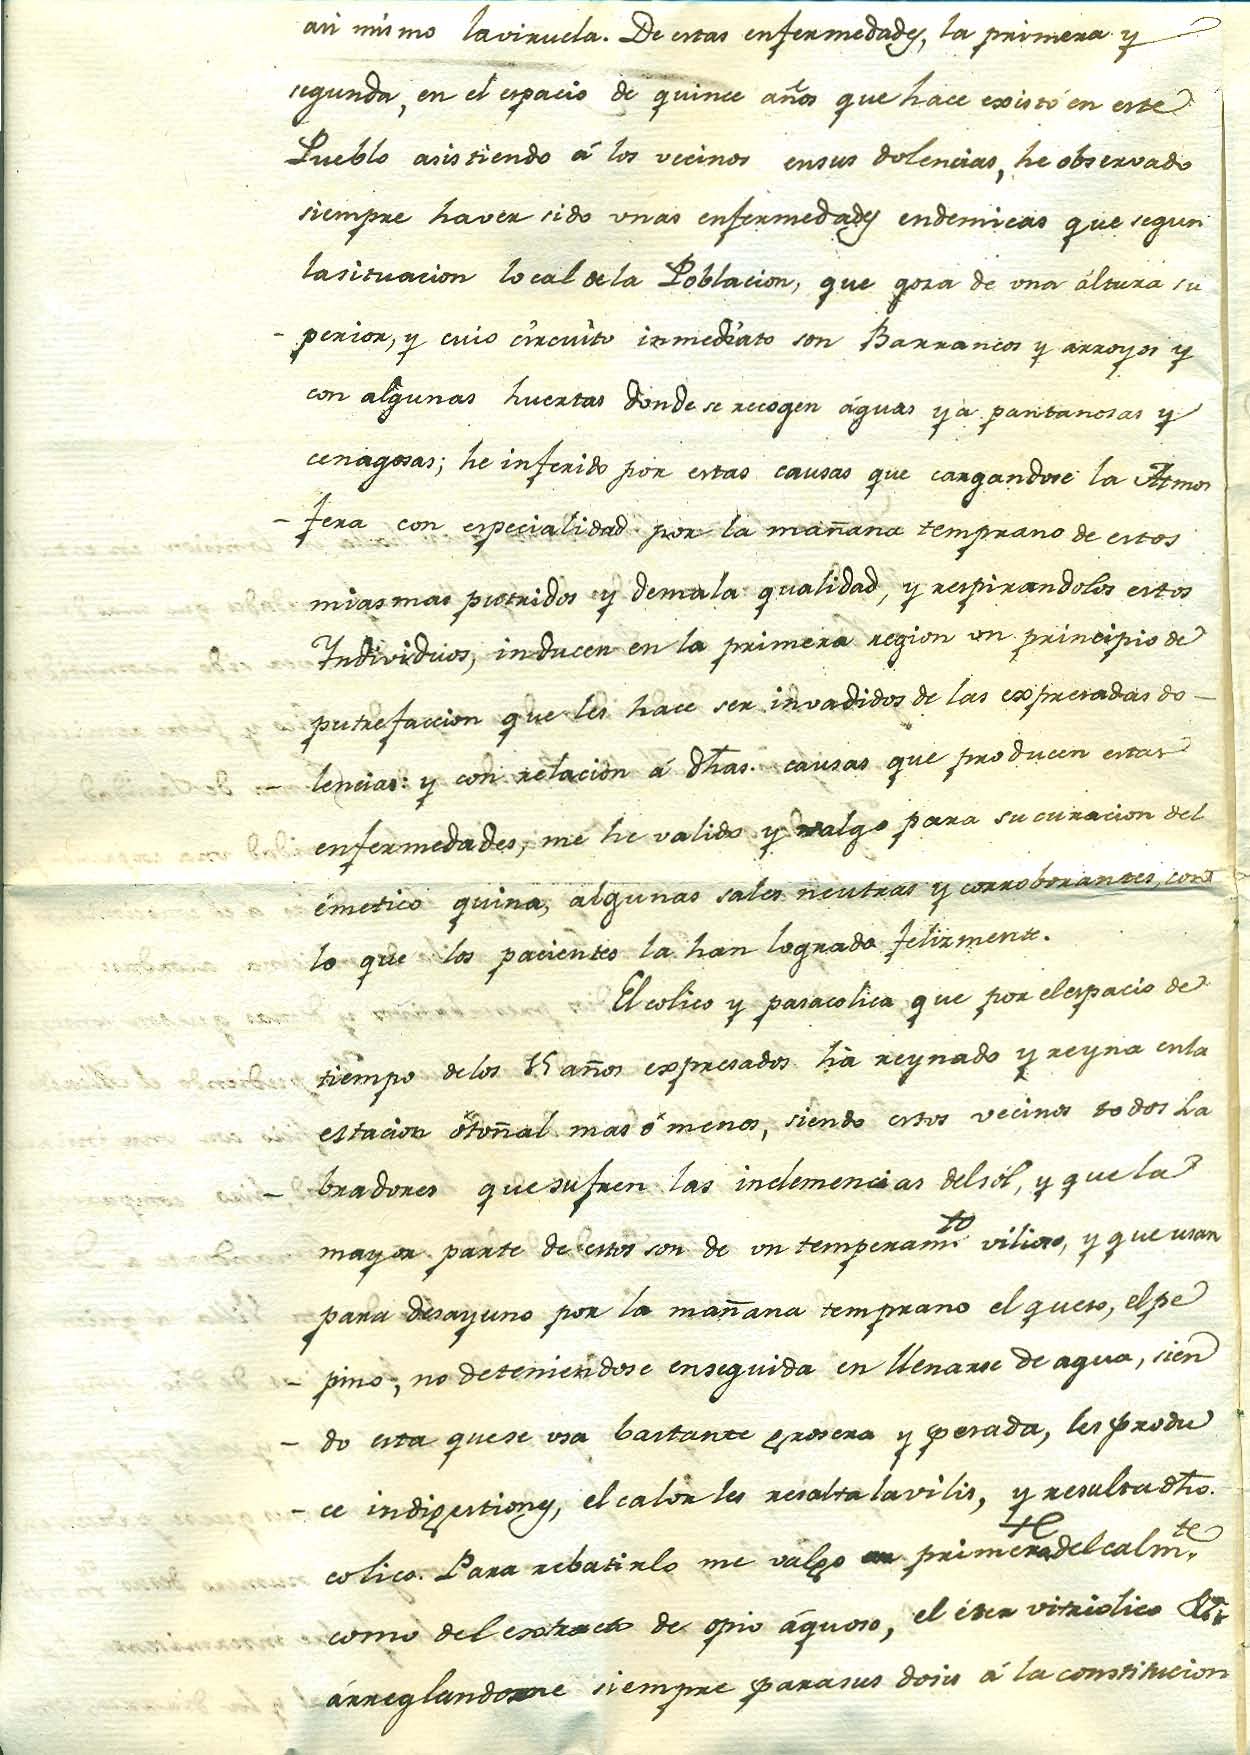 asi mismo laviruela. De estas enfermedades, la primera y
segunda, en el espacio de quince años que hace existo en este
Pueblo asistiendo á los vecinos ensus dolencias, he observado
siempre haver sido unas enfermedades endemicas que segun
lasituacion local dela Poblacion, que goza de una áltura su
- perior, y cuio circuito inmediato son Barrancos y arroyos y
con algunas huertas donde se recogen águas ya pantanosas y
cenagosas; he inferido por estas causas que cargandose la Atmos
- fera con especialidad por la mañana temprano de estos
miasmas putridos y demala qualidad, y respirandolos estos
Individuos, inducen en la primera region un principio de
putrefaccion que les hace ser invadidos de las expresadas do -
- lencias: y con relacion á dhas. causas que producen estas
enfermedades, me he valido y valgo para su curacion del
émetico quina, algunas sales neutras y corroborantes, con
lo que los pacientes la han logrado felizmente.
El colico y pasacolica que por el espacio de
tiempo delos 15 años expresados ha reynado y reyna enla
estacion ótoñal mas ó menos, siendo estos vecinos todos La
- bradores que sufren las inclemencias delsól, y que la
mayor parte de estos son de un temperamto. vilioso, y que usan
para desayuno por la mañana temprano el queso, el pe
- pino, no deteniendose enseguida en llenarse de agua, sien
- do esta quese usa bastante grosera y pesada, les produ
- ce indigestiones, el calor les resalta lavilis, y resulta dho.
colico. Para rebatirlo me valgo primerate del calmte.
como del extracto de opio áquoso, el éter vitriolico
árreglandome siempre parasus dosis á la constitucion